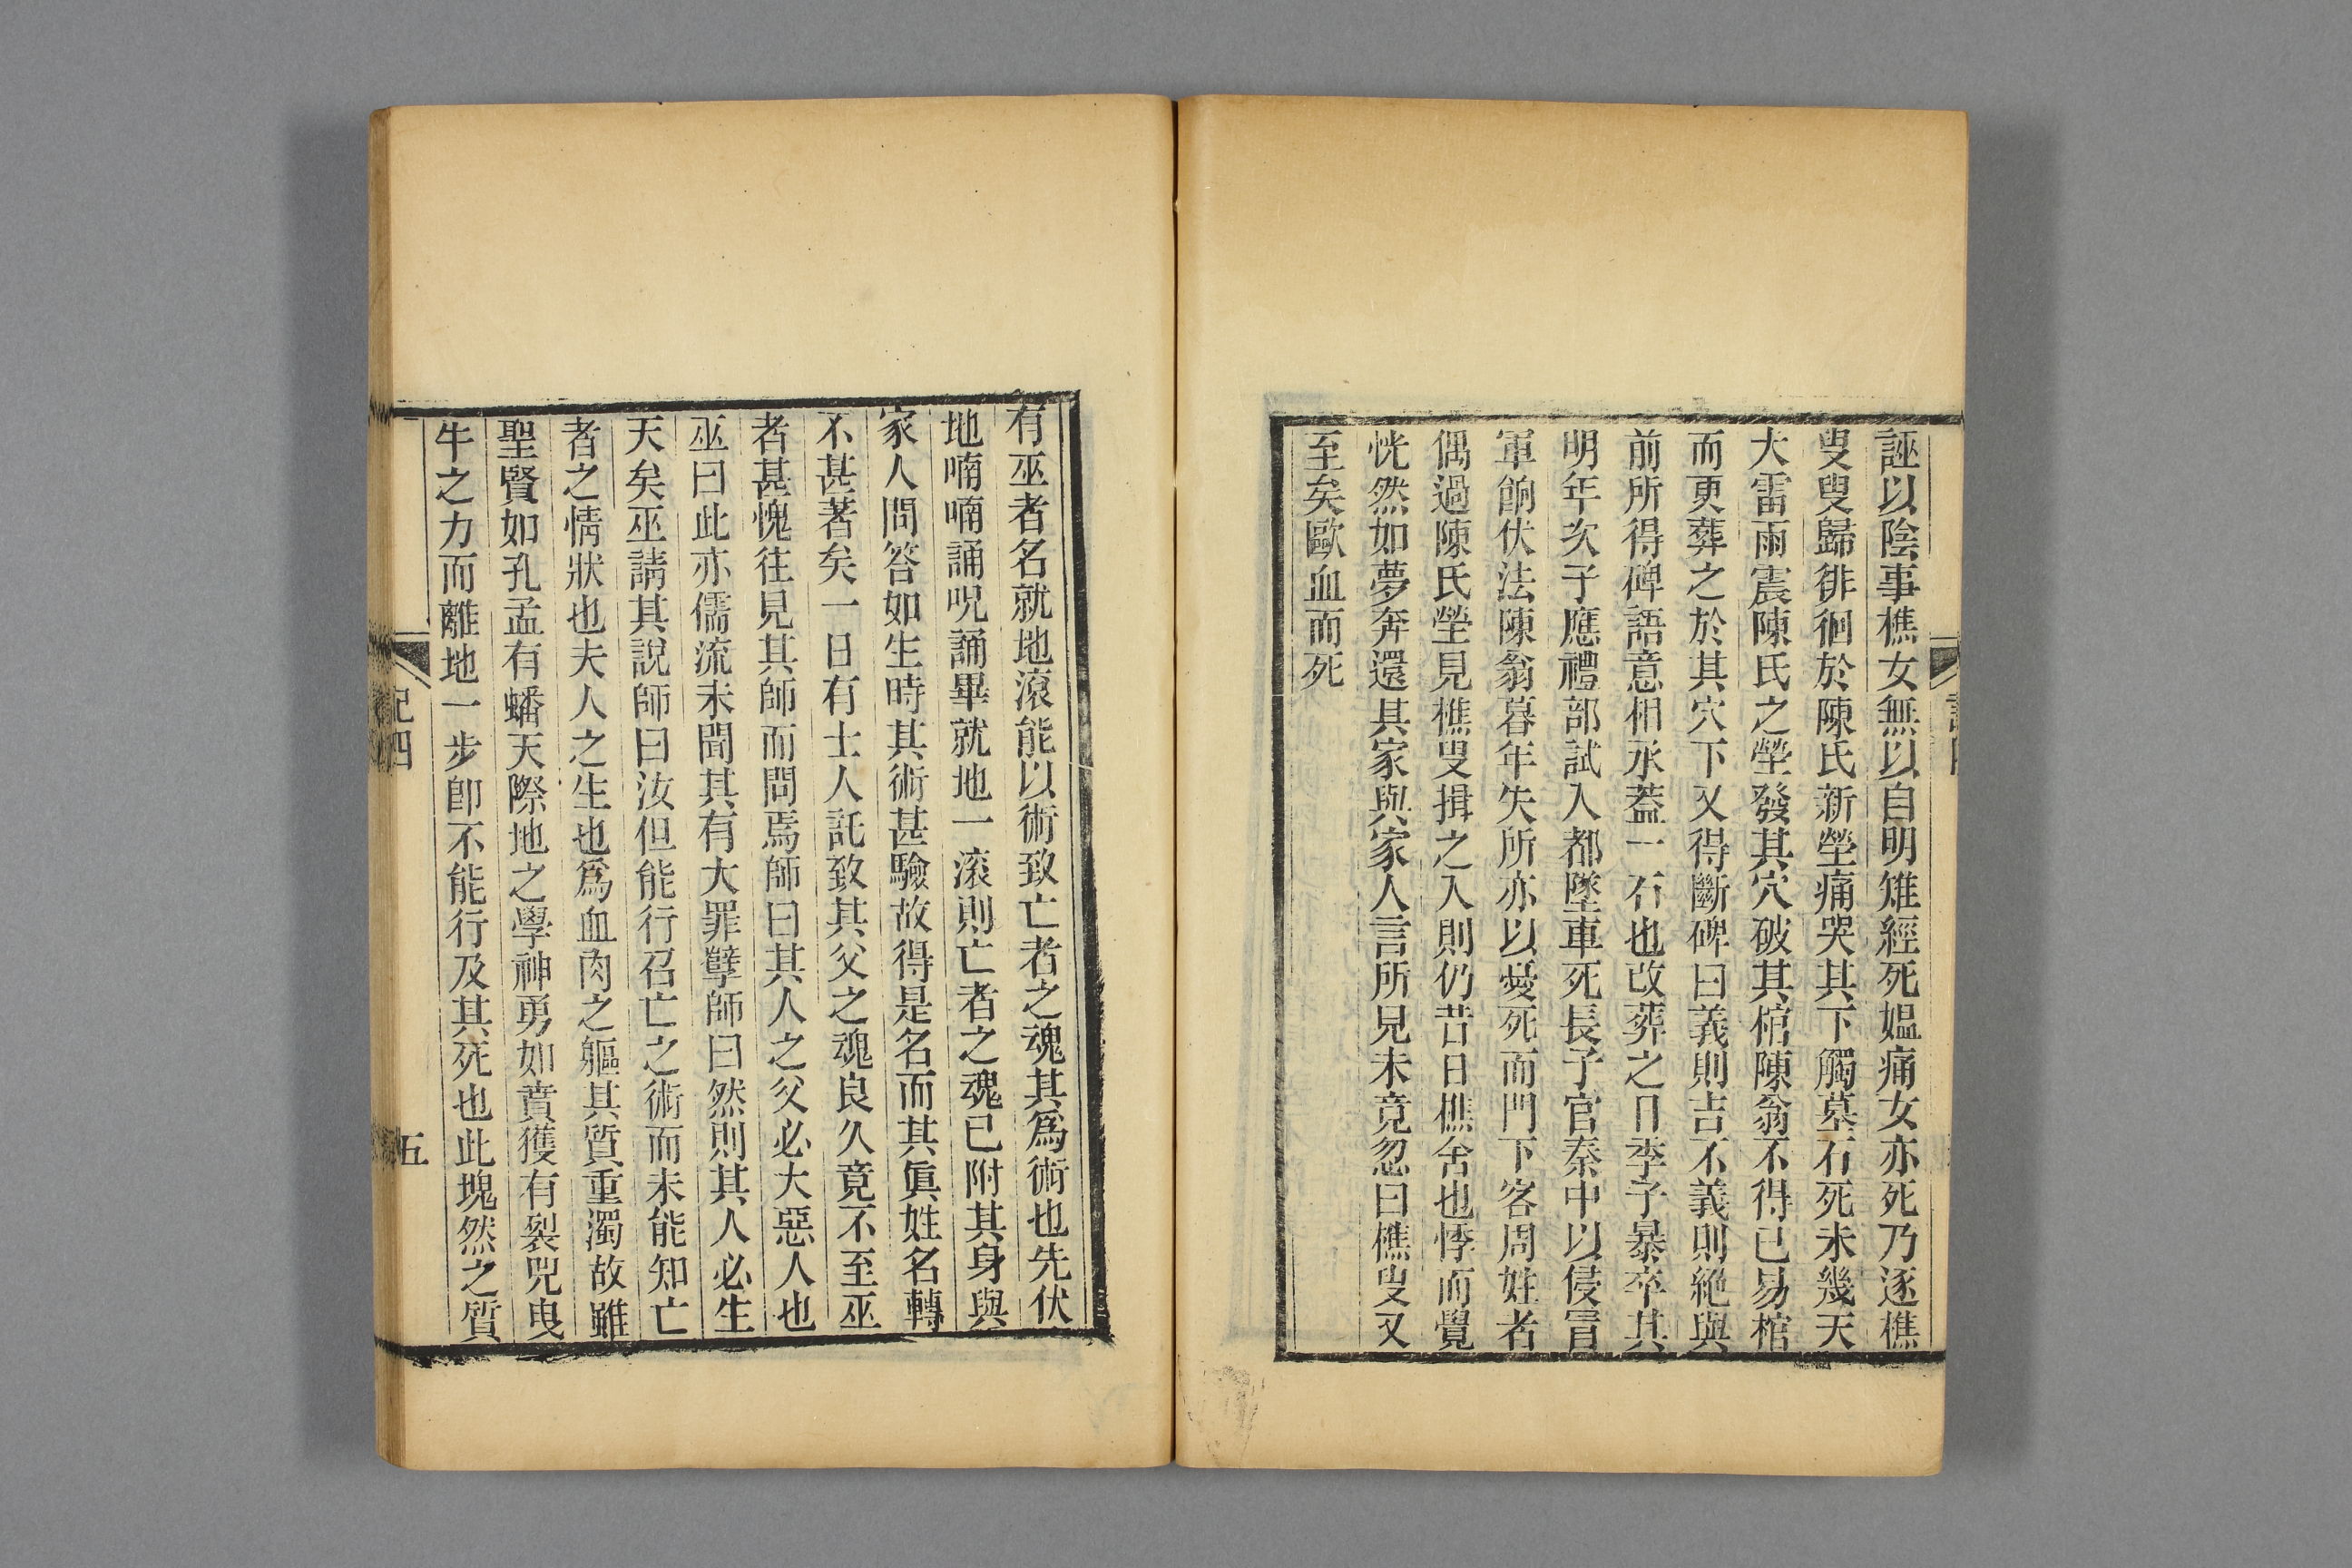 誣以陰事樵女無以自明雉經死媼痛女亦死乃逐樵
叟叟歸徘徊於陳氏新塋痛哭其下觸墓石死未幾天
大雷雨震陳氏之塋發其穴破其棺陳翁不得已易棺
而更葬之於其穴下又得斷碑曰義則吉不義則絶與
前所得碑語意相承葢一石也改葬之日季子暴卒其
明年次子應禮部試入都墜車死長子官秦中以侵冒
軍餉伏法陳翁暮年失所亦以憂死而門下客周姓者
偶過陳氏塋見樵叟揖之入則仍昔日樵舍也悸而覺
恍然如夢奔還其家與家人言所見未竟忽曰樵叟又
至矣歐血而死
有巫者名就地滾能以術致亡者之魂其爲術也先伏
地喃喃誦呪誦畢就地一滾則亡者之魂已附其身與
家人問答如生時其術甚驗故得是名而其眞姓名轉
不甚著矣一日有士人託致其父之魂良久竟不至巫
者甚愧往見其師而問焉師曰其人之父必大惡人也
巫曰此亦儒流未聞其有大罪孽師曰然則其人必生
天矣巫請其說師曰汝但能行召亡之術而未能知亡
者之情狀也夫人之生也爲血肉之軀其質重濁故雖
聖賢如孔孟有蟠天際地之學神勇如賁獲有裂兕曳
牛之力而離地一步卽不能行及其死也此塊然之質
記四
五